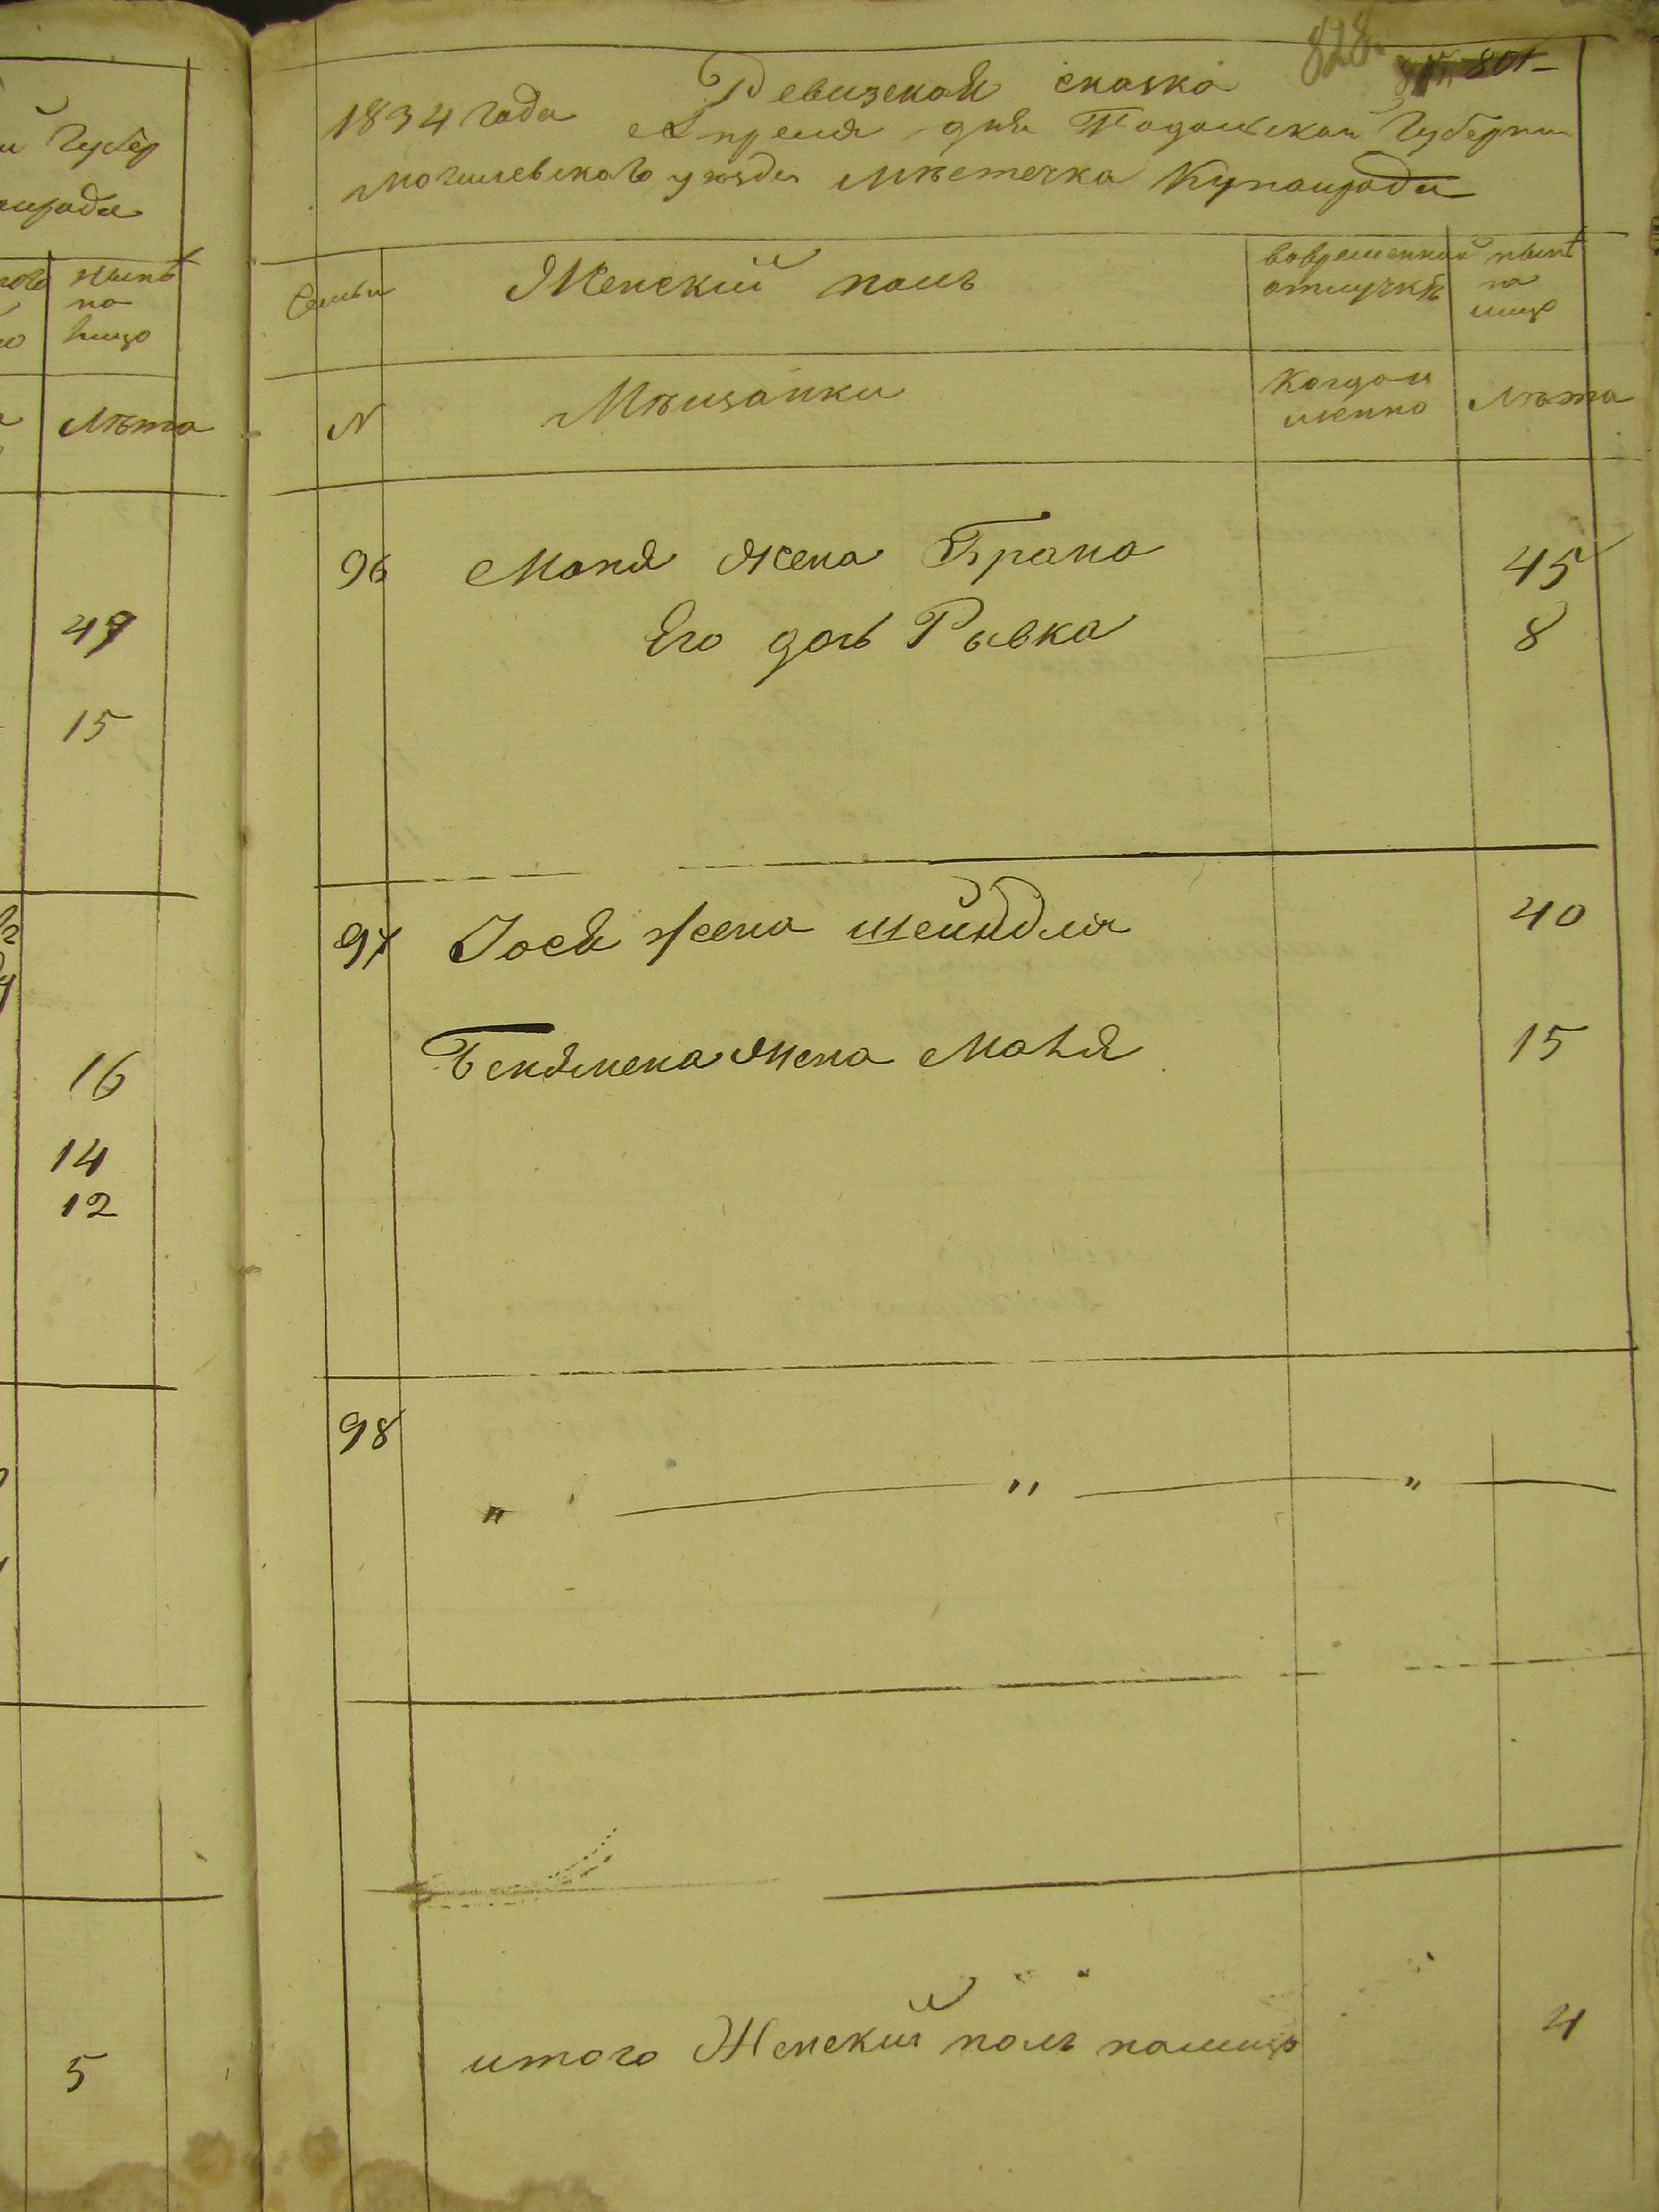 й Губер
нирода
ныне
на
лицо
Лѣта
49
15
16
14
12
5
828.
801
Ревизская сказка
1834 года Апреля дня Подольской Губернии
Могилевского уѣзда Мѣстечка Купанрода
Семьи
Женский полъ
вовременной отлучкѣ
нынѣ на лицо
N
Мѣщанки
Когдаи менно
Лѣта
96 Моня жена Брана 45
Его дочь Рывка 8
97 Iося жена шейндля 40
Бенямена жена Маня 15
98
" " "
итого Женский полъ налицо 4